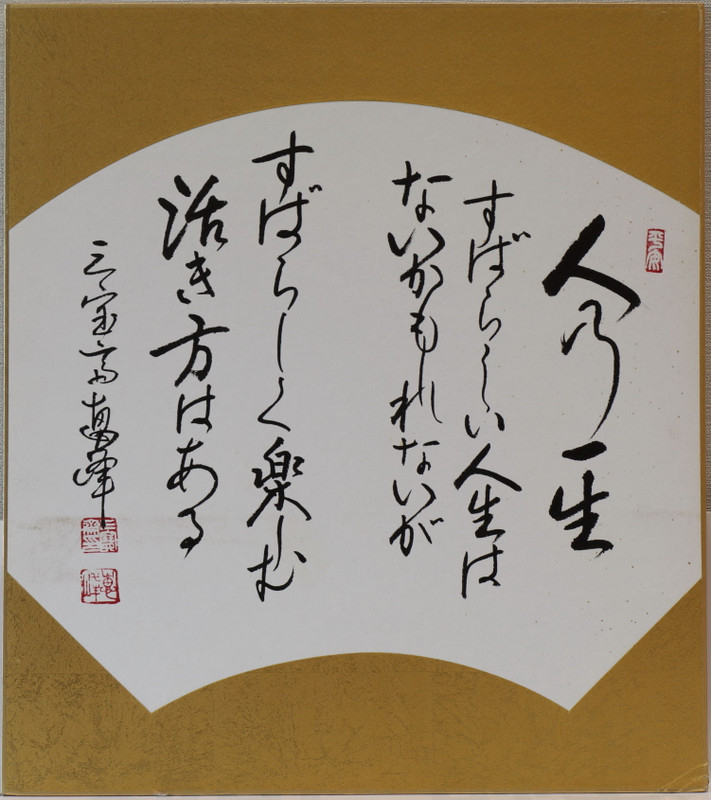 人乃一生
すばらしい人生は
ないかもれないが
すばらしく楽しむ
活き方はある